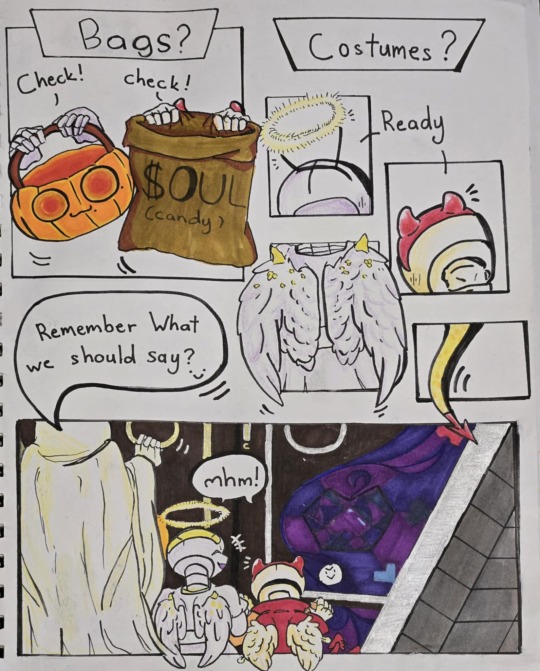 Bags?
Costumes?
Check!
check!
$OUL
(candy)
Ready
Remember What
we should say?
mhm!